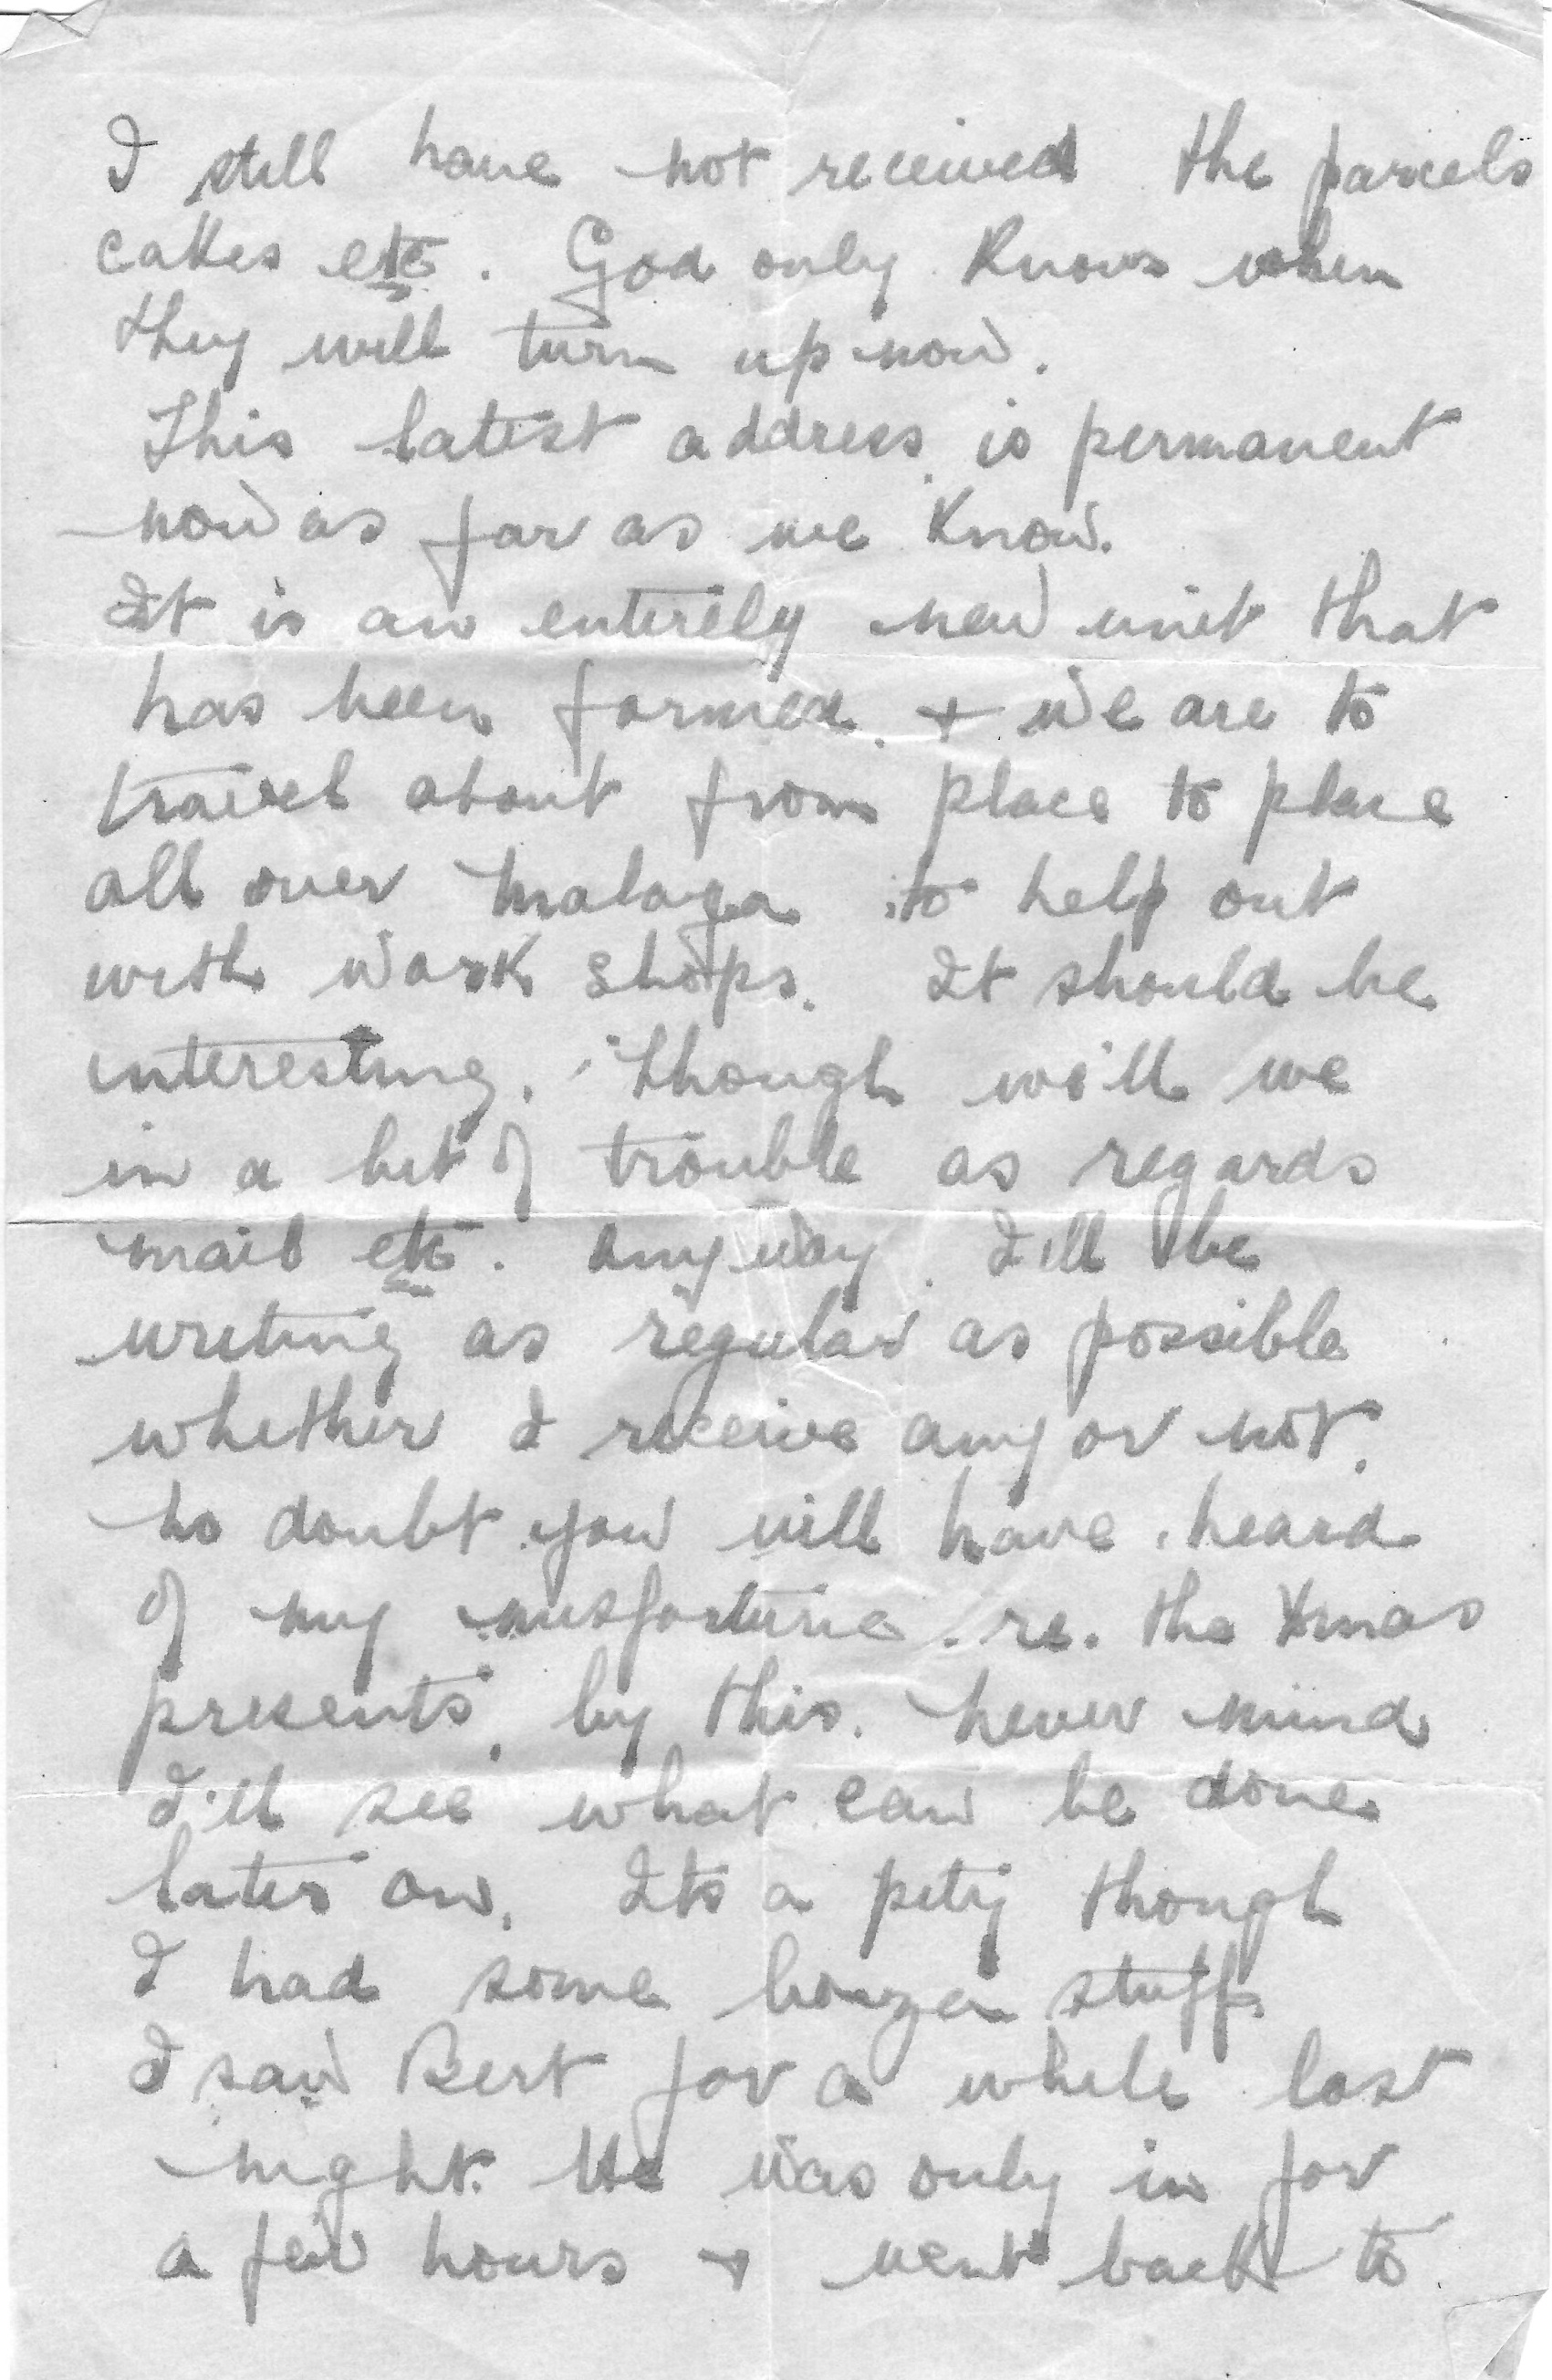 I still have not received the parcels
cakes etc. God only knows when
they will turn up now.
This latest address is permanent
now as far as we know.
It is an entirely new unit that
has been formed. & we are to
travel about from place to place
all over Malaya to help out
with work shops. It should be
interesting. Though we'll we
in a bit of trouble as regards
mail etc. anyway. I'll be
writing as regular as possible
whether I receive any or not.
No doubt you will have heard
of my misfortune. re. the Xmas
presents, by this. Never mind
I'll see what can be done
later on. Its a pity though
I had some bonzer stuff.
I saw Bert for a while last
night. He was only in for
a few hours & went back to